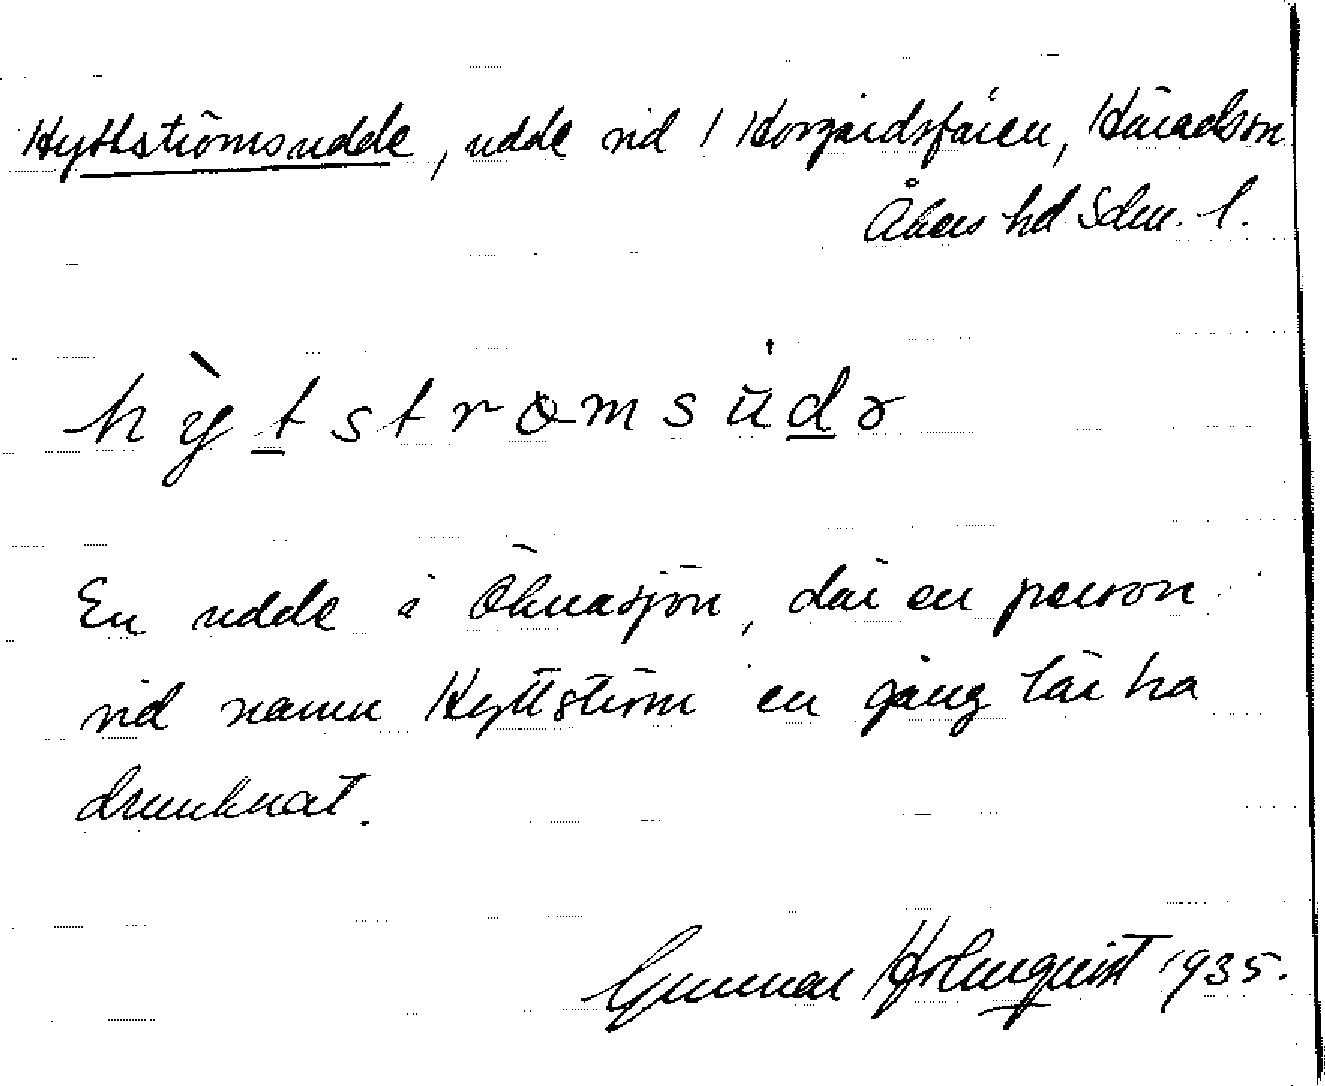 Hyttströmsudde, udde vid / Horgårdsfåren, Häradson
Åkers hd Sdm. l.
hỳtstrømsùdə
En udde i Öknasjön, där en person
vid namn Hyttström en gång lär ha
drunknat.
Gunnar Holmquist 1935.